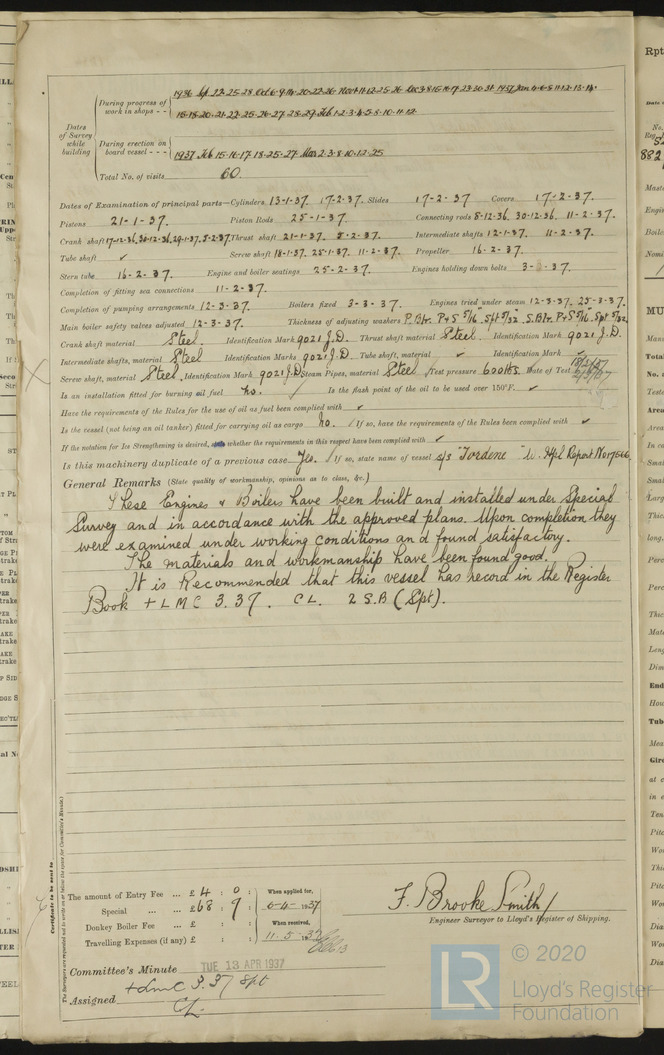 During progress of work in shops - - 1936 Sep 22·25·28 Oct 6·9·14·20·22·26 Nov 11·12·25·26 Dec 3·8·15·16·17·23·30·31 1937 Jan 4·6·8·11·12·13·14·
15·18·20·21·22·25·26·27·28·29 Feb 1·2·3·4·5·8·10·11·12
Dates of Survey while building
During erection on board vessel - - - 1937 Feb 15·16·17·18·25·27 Mar 2·3·8·10·12·25
Total No. of visits 60.
Dates of Examination of principal parts—Cylinders 13-1-37. 17-2-37. Slides 17-2-37 Covers 17-2-37.
Pistons 21-1-37. Piston Rods 25-1-37. Connecting rods 8-12-36. 30-12-36. 11-2-37.
Crank shaft 17-12-36. 30-12-36. 29-1-37. 5-2-37. Thrust shaft 21-1-37. 5-2-37. Intermediate shafts 12-1-37. 11-2-37.
Tube shaft ✓ Screw shaft 18-1-37. 25-1-37. 11-2-37. Propeller 16-2-37.
Stern tube 16-2-37. Engine and boiler seatings 25-2-37. Engines holding down bolts 3-3-37.
Completion of fitting sea connections 11-2-37.
Completion of pumping arrangements 12-3-37. Boilers fixed 3-3-37. Engines tried under steam 12-3-37. 25-3-37.
Main boiler safety valves adjusted 12-3-37. Thickness of adjusting washers P.Blr. P+S 5/16 Spt 5/32 S.Blr. P+S 5/16. Spt. 5/32
Crank shaft material Steel. Identification Mark 9021 J.D. Thrust shaft material Steel. Identification Mark 9021 J.D.
Intermediate shafts, material Steel Identification Marks 9021 J.D. Tube shaft, material ✓ Identification Mark ✓
Screw shaft, material Steel. Identification Mark 9021 J.D. Steam Pipes, material Steel Test pressure 600lbs. Date of Test
Is an installation fitted for burning oil fuel No. / Is the flash point of the oil to be used over 150°F. ✓
Have the requirements of the Rules for the use of oil as fuel been complied with ✓
Is the vessel (not being an oil tanker) fitted for carrying oil as cargo No. / If so, have the requirements of the Rules been complied with ✓
If the notation for Ice Strengthening is desired, state whether the requirements in this respect have been complied with ✓
Is this machinery duplicate of a previous case Yes. / If so, state name of vessel S/S "Tordene" W. Hpl Report No 17566.
General Remarks (State quality of workmanship, opinions as to class, &c.)
These Engines & Boilers have been built and installed under Special
Survey and in accordance with the approved plans. Upon completion they
were examined under working conditions and found satisfactory.
The materials and workmanship have been found good.
It is Recommended that this vessel has record in the Register
Book + LMC 3.37. CL. 2 S.B (Spt).
Certificate to be sent to
(The Surveyors are requested not to write on or below the space for Committee's Minute.)
The amount of Entry Fee ... £ 4 : 0 : When applied for,
Special ... ... £ 68 : 9 : 6-4-1937
Donkey Boiler Fee ... £ : : When received,
Travelling Expenses (if any) £ : : 11.5.1937
F. Brooke Smith
Engineer Surveyor to Lloyd's Register of Shipping.
Committee's Minute TUE 13 APR 1937
Assigned + LMC 3.37 Spt
CL.
LR © 2020
Lloyd's Register
Foundation